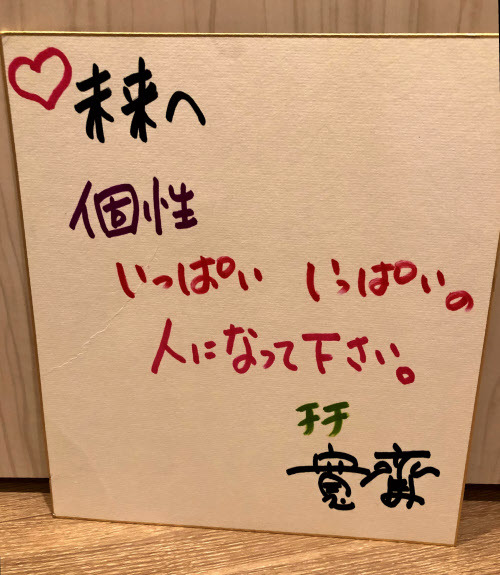 未来へ
個性
いっぱい いっぱいの
人になって下さい。
チチ
寛斎